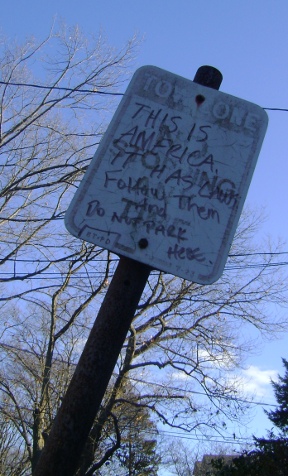 TOW ZONE
THIS IS
AMERICA
IT HAS LAWS
Follow Them
And
Do NOT PARK
HERE.